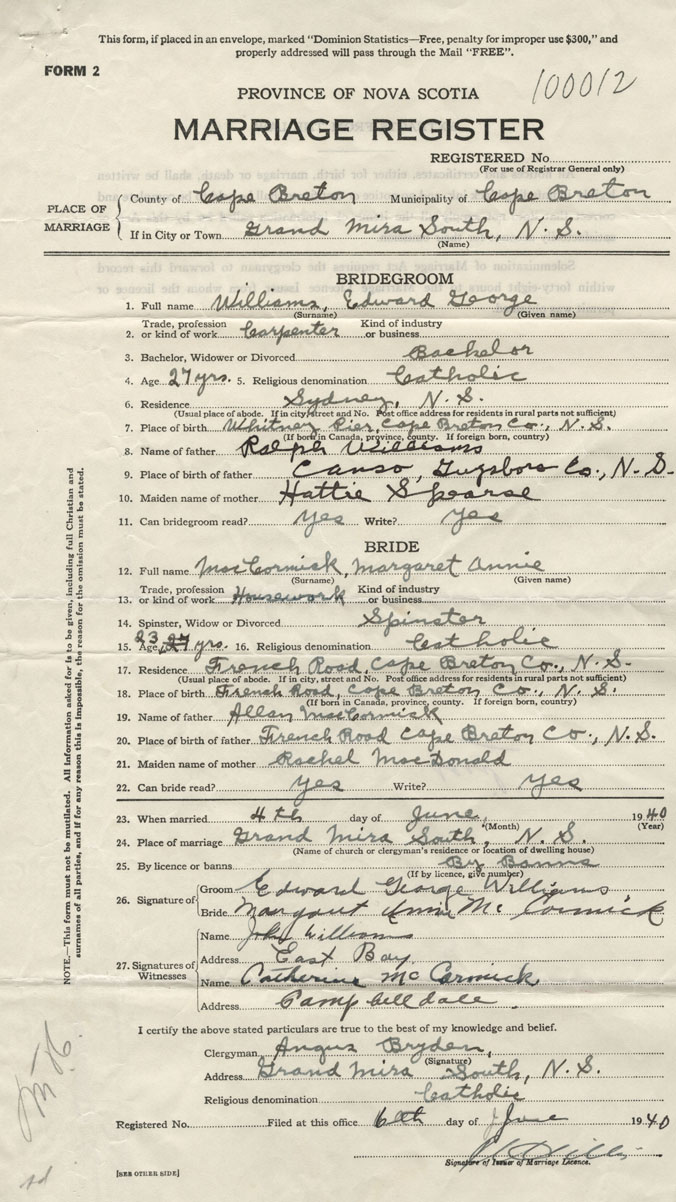 This form, if placed in an envelope, marked "Dominion Statistics—Free, penalty for improper use $300," and
properly addressed will pass through the Mail "FREE".
FORM 2
100012
PROVINCE OF NOVA SCOTIA
MARRIAGE REGISTER
REGISTERED No.
(For use of Registrar General only)
PLACE OF MARRIAGE
County of Cape Breton Municipality of Cape Breton
If in City or Town Grand Mira South, N. S.
(Name)
BRIDEGROOM
1. Full name Williams, Edward George
(Surname) (Given name)
2. Trade, profession or kind of work Carpenter Kind of industry or business
3. Bachelor, Widower or Divorced Bachelor
4. Age 27 yrs. 5. Religious denomination Catholic
6. Residence Sydney, N. S.
(Usual place of abode. If in city, street and No. Post office address for residents in rural parts not sufficient)
7. Place of birth Whitney Pier, Cape Breton Co., N. S.
(If born in Canada, province, county. If foreign born, country)
8. Name of father Ralph Williams
9. Place of birth of father Canso, Guysboro Co., N. S.
10. Maiden name of mother Hattie Spearse
11. Can bridegroom read? Yes Write? Yes
BRIDE
12. Full name MacCormick, Margaret Annie
(Surname) (Given name)
13. Trade, profession or kind of work Housework Kind of industry or business
14. Spinster, Widow or Divorced Spinster
15. Age 23 27 yrs. 16. Religious denomination Catholic
17. Residence French Road, Cape Breton Co., N. S.
(Usual place of abode. If in city, street and No. Post office address for residents in rural parts not sufficient)
18. Place of birth French Road, Cape Breton Co., N. S.
(If born in Canada, province, county. If foreign born, country)
19. Name of father Allan MacCormick
20. Place of birth of father French Road Cape Breton Co., N. S.
21. Maiden name of mother Rachel MacDonald
22. Can bride read? Yes Write? Yes
23. When married 4th day of June, 1940
(Month) (Year)
24. Place of marriage Grand Mira South, N. S.
(Name of church or clergyman's residence or location of dwelling house)
25. By licence or banns By Banns
(If by licence, give number)
26. Signature of
Groom Edward George Williams
Bride Margaret Annie McCormick
27. Signatures of Witnesses
Name John Williams
Address East Bay
Name Catherine McCormick
Address Campbelldale
I certify the above stated particulars are true to the best of my knowledge and belief.
Clergyman Angus Bryden,
(Signature)
Address Grand Mira South, N. S.
Religious denomination Catholic
Registered No. Filed at this office 6th day of June 1940
Signature of Issuer of Marriage Licence.
[SEE OTHER SIDE]
NOTE.—This form must not be mutilated. All information asked for is to be given, including full Christian and
surnames of all parties, and if for any reason this is impossible, the reason for the omission must be stated.